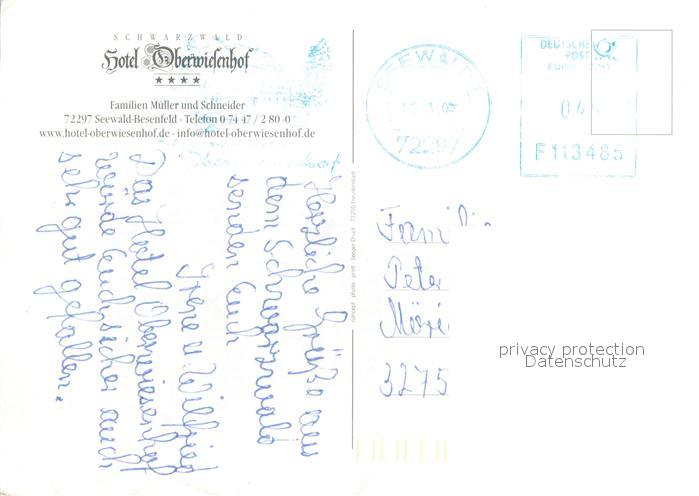 SCHWARZWALD
Hotel Oberwiesenhof
★★★★
Familien Müller und Schneider
72297 Seewald-Besenfeld · Telefon 0 74 47 / 2 80 -0
www.hotel-oberwiesenhof.de · info@hotel-oberwiesenhof.de
Herzliche Grüße aus
dem Schwarzwald
senden Euch
Irene u. Wilfried
Das Hotel Oberwiesenhof
würde Euch sicher auch
sehr gut gefallen.
concept · photo · print Seeger Druck 72250 Freudenstadt
SEEWALD
72297
DEUTSCHE
POST
F113485
Familie
Peter
3275
privacy protection
Datenschutz